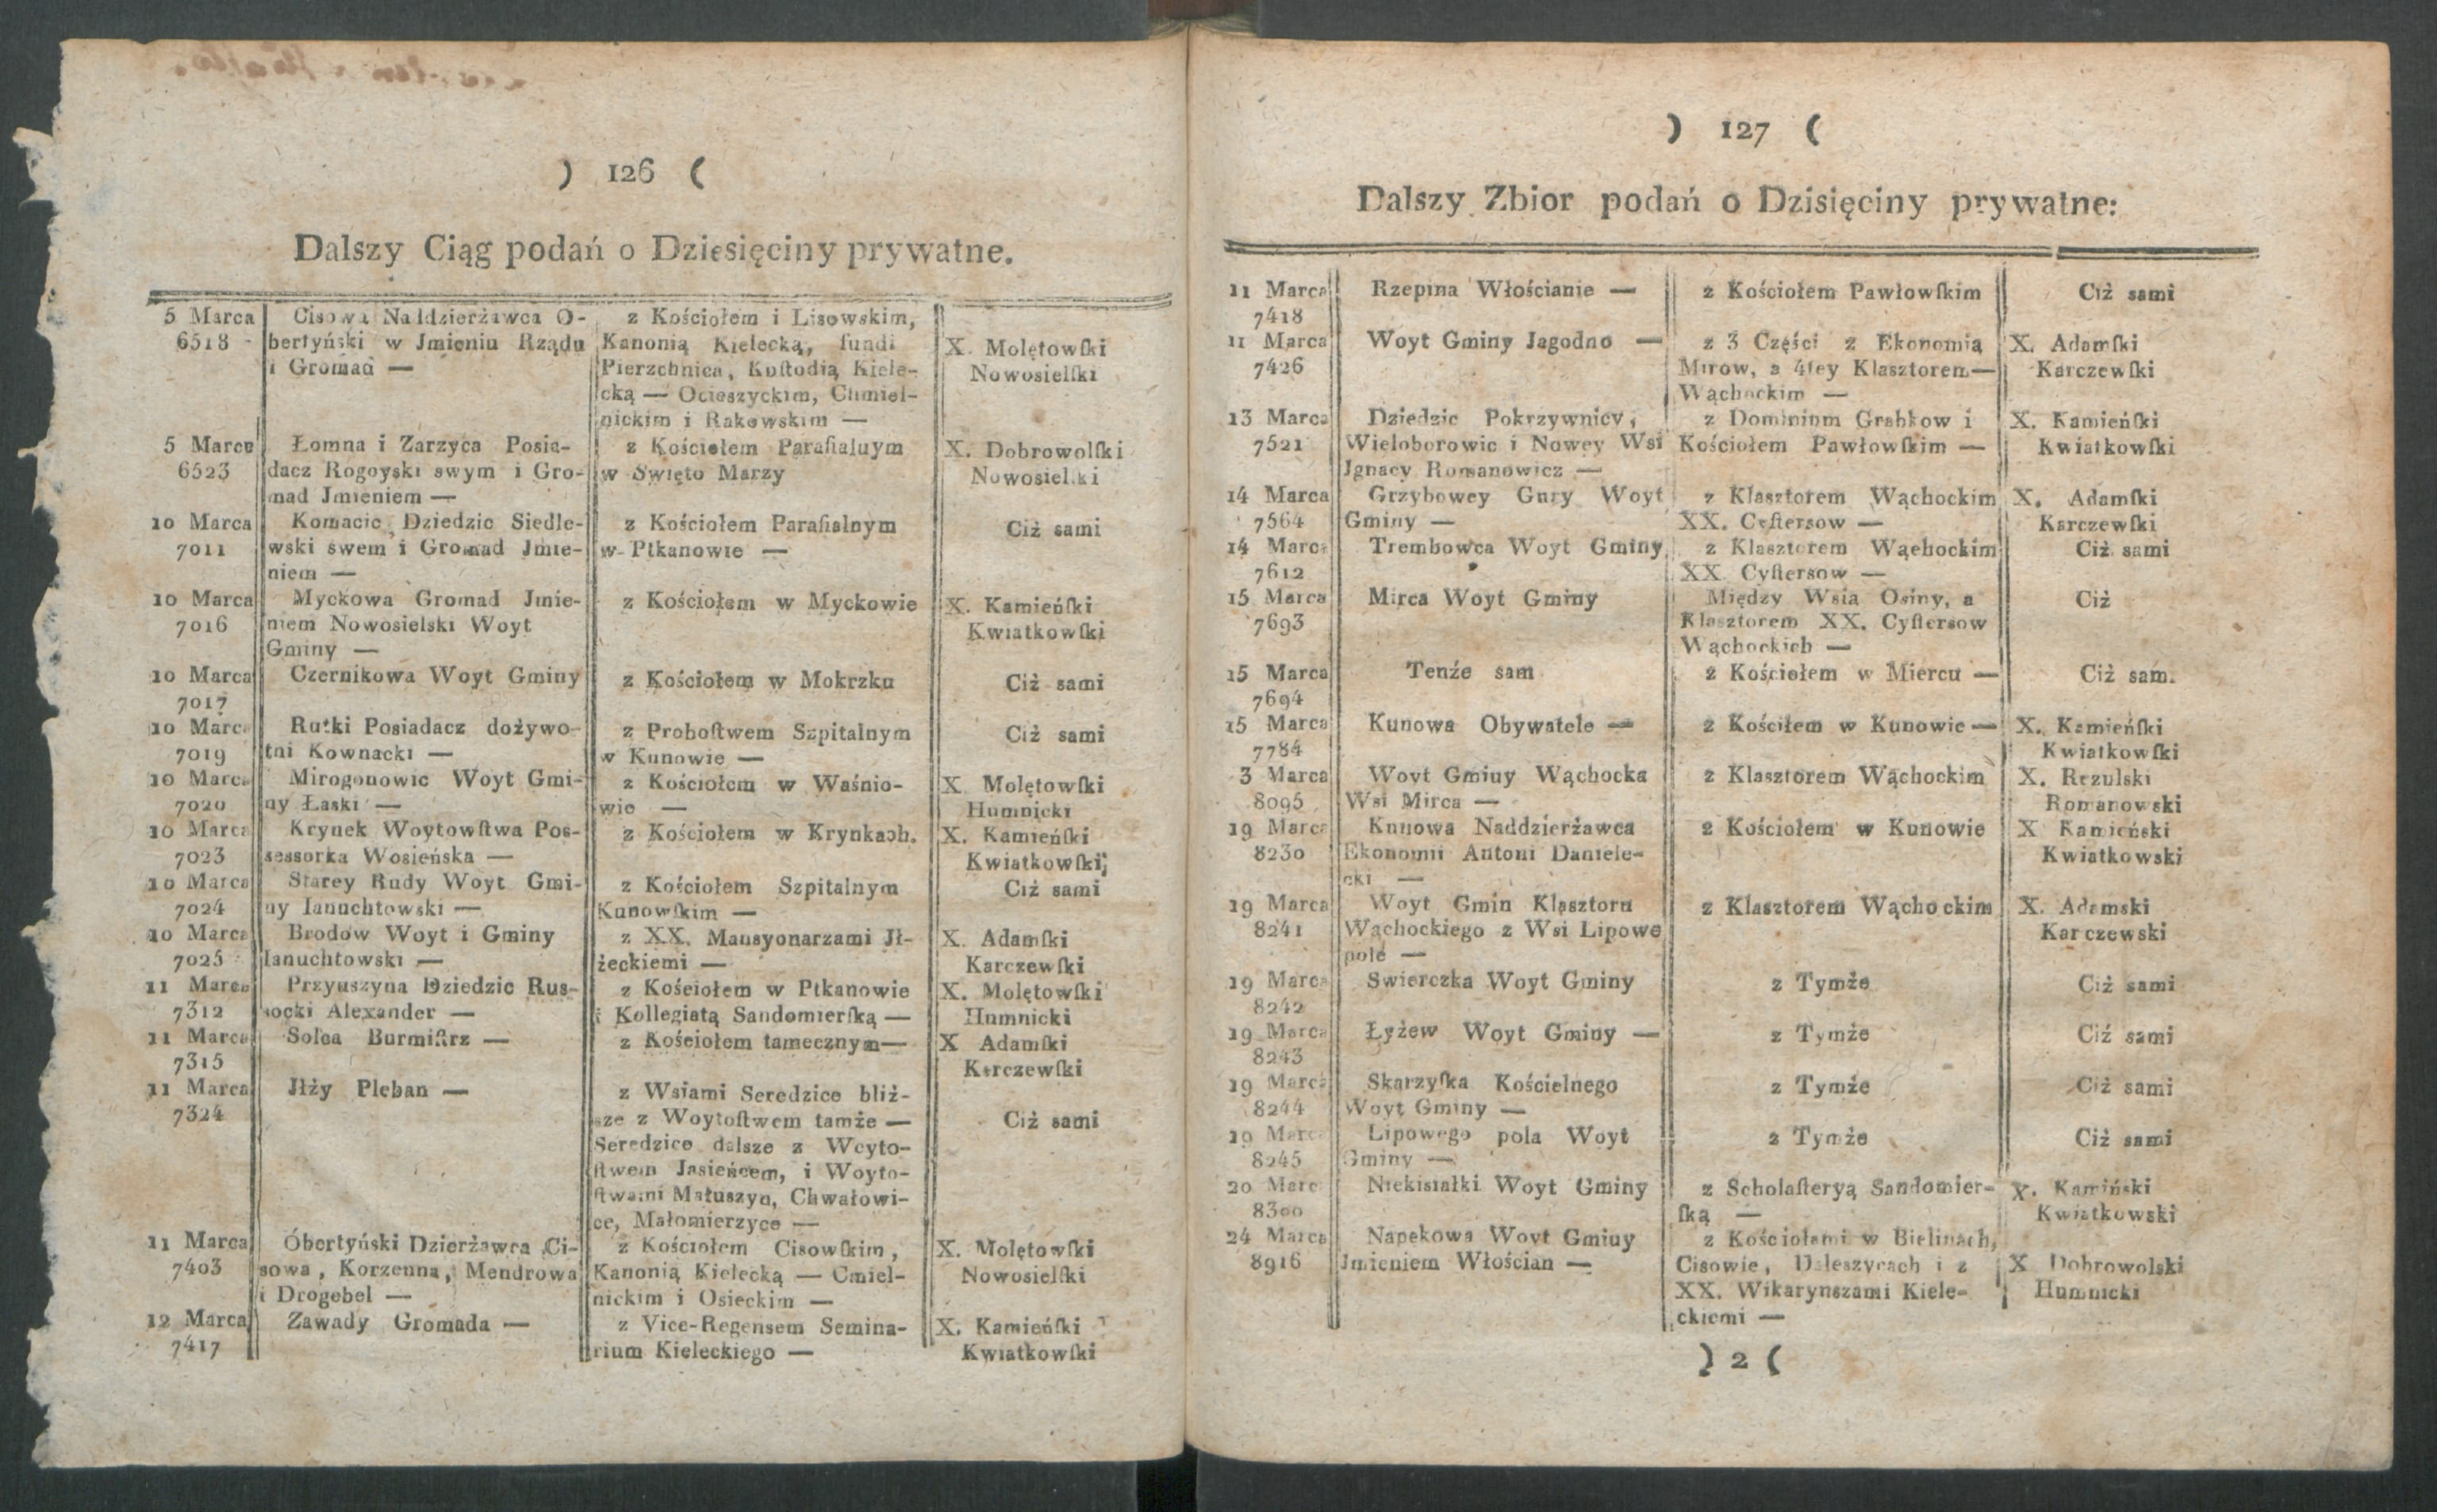 ) 126 (
Dalszy Ciąg podań o Dziesięciny prywatne.
5 Marca
6518
Cisowa Naddzierżawca O-
bertyński w Jmieniu Rządu
i Gromad —
z Kościołem i Lisowskim,
Kanonią Kielecką, fundi
Pierzchnica, Kuſtodią Kiele-
cką — Ocieszyckim, Chmiel-
nickim i Rakowskim —
X. Molętowſki
Nowosielſki
5 Marca
6523
Łomna i Zarzyca Posia-
dacz Rogoyski swym i Gro-
mad Jmieniem —
z Kościołem Parafialnym
w Swięto Marzy
X. Dobrowolſki
Nowosielski
10 Marca
7011
Komacic Dziedzic Siedle-
wski swem i Gromad Jmie-
niem —
z Kościołem Parafialnym
w Ptkanowie —
Ciż sami
10 Marca
7016
Myckowa Gromad Jmie-
niem Nowosielski Woyt
Gminy —
z Kościołem w Myckowie
X. Kamieńſki
Kwiatkowſki
10 Marca
7017
Czernikowa Woyt Gminy
z Kościołem w Mokrzku
Ciż sami
10 Marca
7019
Rutki Posiadacz dożywo-
tni Kownacki —
z Proboſtwem Szpitalnym
w Kunowie —
Ciż sami
10 Marca
7020
Mirogonowic Woyt Gmi-
ny Łaski —
z Kościołem w Waśnio-
wie —
X Molętowſki
Humnicki
10 Marca
7023
Krynek Woytowſtwa Pos-
sessorka Wosieńska —
z Kościołem w Krynkach.
X. Kamieńſki
Kwiatkowſki;
10 Marca
7024
Starey Rudy Woyt Gmi-
ny Ianuchtowski —
z Kościołem Szpitalnym
Kunowſkim —
Ciż sami
10 Marca
7025
Brodow Woyt i Gminy
Ianuchtowski —
z XX. Mansyonarzami Jł-
żeckiemi —
X. Adamſki
Karczewſki
11 Marca
7312
Przyuszyna Dziedzic Rus-
socki Alexander —
z Kościołem w Ptkanowie
i Kollegiatą Sandomierſką —
X. Molętowſki
Humnicki
11 Marca
7315
Solca Burmiſtrz —
z Kościołem tamecznym—
X Adamſki
Karczewſki
11 Marca
7324
Jłży Pleban —
z Wsiami Seredzice bliż-
sze z Woytoſtwem tamże —
Seredzice dalsze z Woyto-
ſtwem Jasieńcem, i Woyto-
ſtwami Matuszyn, Chwałowi-
ce, Małomierzyce —
Ciż sami
11 Marca
7403
Óbertyński Dzierżawca Ci-
sowa, Korzenna, Mendrowa
i Drogebel —
z Kościołem Cisowſkim,
Kanonią Kielecką — Cmiel-
nickim i Osieckim —
X. Molętowſki
Nowosielſki
12 Marca
7417
Zawady Gromada —
z Vice-Regensem Semina-
rium Kieleckiego —
X. Kamieńſki
Kwiatkowſki
) 127 (
Dalszy Zbior podań o Dzisięciny prywatne:
11 Marca
7418
Rzepina Włościanie —
z Kościołem Pawłowſkim
Ciż sami
11 Marca
7426
Woyt Gminy Jagodno —
z 3 Części z Ekonomią
Mirow, a 4tey Klasztorem—
Wąchockim —
X. Adamſki
Karczewſki
13 Marca
7521
Dziedzic Pokrzywnicy,
Wieloborowic i Nowey Wsi
Jgnacy Romanowicz —
z Dominium Grabkow i
Kościołem Pawłowſkim —
X. Kamieńſki
Kwiatkowſki
14 Marca
7564
Grzybowey Gury Woyt
Gminy —
z Klasztorem Wąchockim
XX. Cyſtersow —
X. Adamſki
Karczewſki
14 Marca
7612
Trembowca Woyt Gminy
z Klasztorem Wąchockim
XX. Cyſtersow —
Ciż sami
15 Marca
7693
Mirca Woyt Gminy
Między Wsia Osiny, a
Klasztorem XX. Cyſtersow
Wąchockich —
Ciż
15 Marca
7694
Tenże sam
z Kościołem w Miercu —
Ciż sam.
15 Marca
7784
Kunowa Obywatele —
z Kościłem w Kunowie —
X. Kamieńſki
Kwiatkowſki
3 Marca
8095
Woyt Gminy Wąchocka
Wsi Mirca —
z Klasztorem Wąchockim
X. Rezulski
Romanowski
19 Marca
8230
Kunowa Naddzierżawca
Ekonomii Antoni Daniele-
cki —
z Kościołem w Kunowie
X Kamieński
Kwiatkowski
19 Marca
8241
Woyt Gmin Klasztoru
Wąchockiego z Wsi Lipowe
pole —
z Klasztorem Wąchockim
X. Adamski
Karczewski
19 Marca
8242
Swierczka Woyt Gminy
z Tymże
Ciż sami
19 Marca
8243
Łyżew Woyt Gminy —
z Tymże
Ciż sami
19 Marca
8244
Skarzyſka Kościelnego
Woyt Gminy —
z Tymże
Ciż sami
19 Marca
8245
Lipowego pola Woyt
Gminy —
z Tymże
Ciż sami
20 Marc
8300
Niekisiałki Woyt Gminy
z Scholaſteryą Sandomier-
ſką —
X. Kamiński
Kwiatkowski
24 Marca
8916
Napekowa Woyt Gminy
Jmieniem Włościan —
z Kościołami w Bielinach,
Cisowie, Daleszycach i z
XX. Wikarynszami Kiele-
ckiemi —
X Dobrowolski
Humnicki
) 2 (